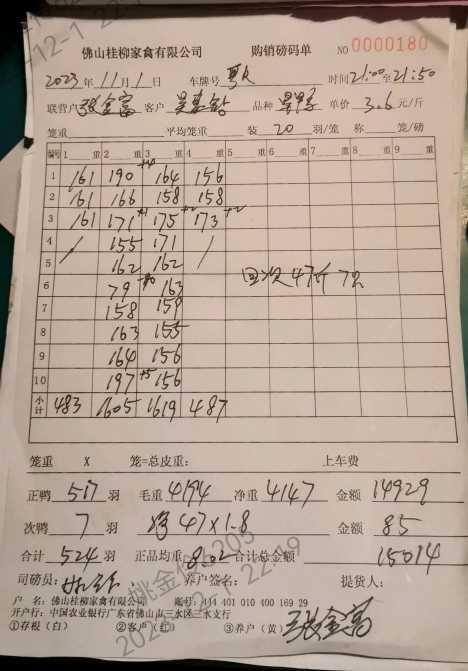 佛山桂柳家禽有限公司 购销磅码单 NO 0000180
2023年11月1日 车牌号 时间21:00至21:50
联营户 张金富 客户 品种 单价 3.6 元/斤
笼重 平均笼重 装 20 羽/笼 称 笼/磅
编号 1 重 2 重 3 重 4 重 5 重 6 重 7 重 8 重 9 重
1 161 190 164 156
2 161 166 158 158
3 161 171 175 173
4 / 155 171 /
5 162 162
6 79 163 回次47斤7只
7 158 159
8 163 155
9 164 156
10 197 +5 156
小计 483 1605 1619 487
笼重 X 笼=总皮重: 上车费
正鸭 517 羽 毛重 4194 净重 4147 金额 14929
次鸭 7 羽 净 47×1.8 金额 85
合计 524 羽 正品均重 8.02 合计总金额 15014
司磅员: 养户签名: 提货人:
户 名: 佛山桂柳家禽有限公司 账号: 444 401 010 400 169 29
开户行: 中国农业银行广东省佛山市三水区三水支行
①存根(白) ②客户(红) ③养户(黄) 张金富